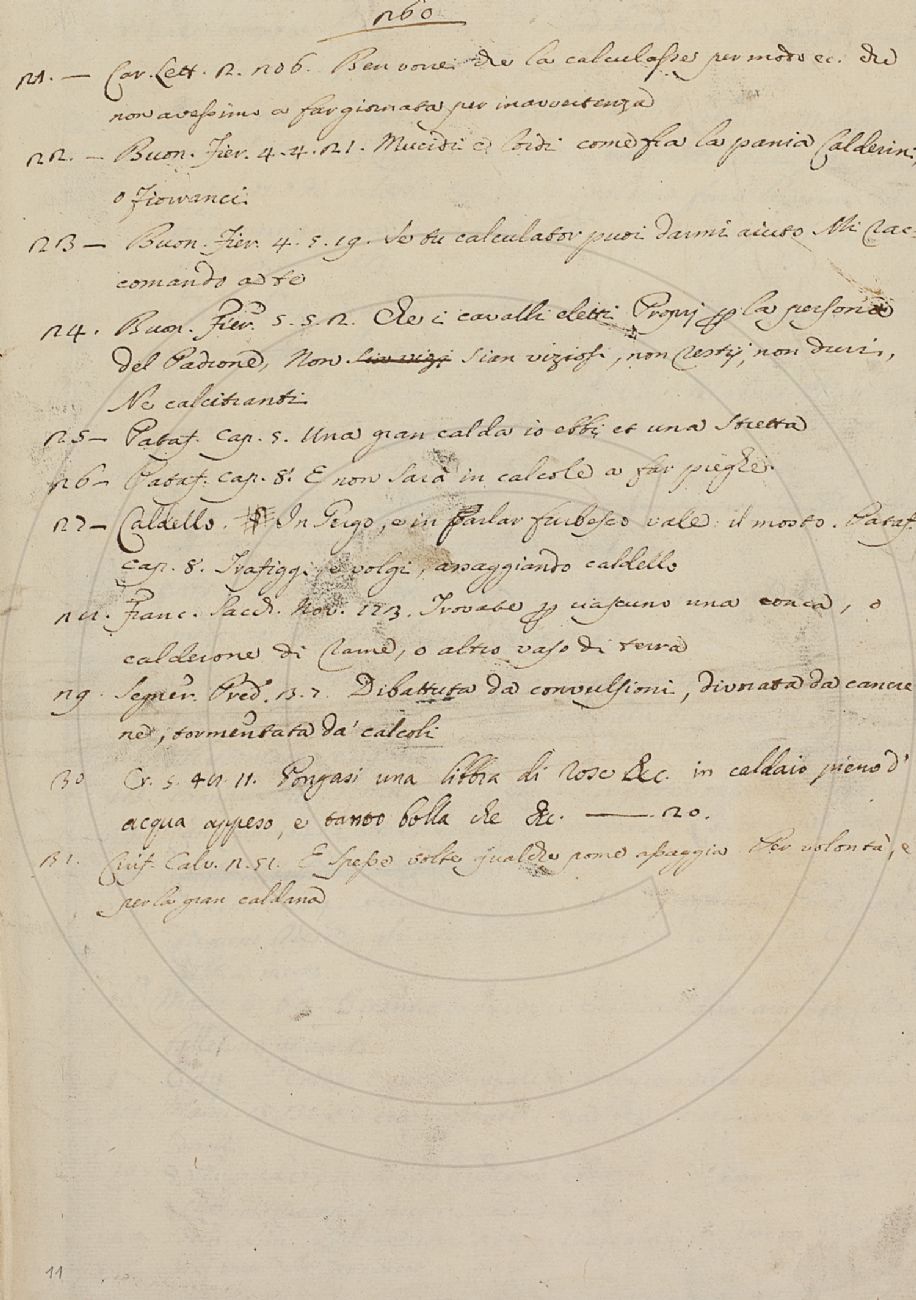 260
21. — Car. Lett. 2. 206. Ben vorrei che la calculasse per modo ec. che
non avessimo a far giornata per inavvertenza
22. — Buon. Fier. 4. 4. 21. Mucidi e lordi come fra la pania Calderini,
o Fiorranci
23 — Buon. Fier. 4. 5. 19. Se tu calculator puoi darmi aiuto Mi rac=
comando a te
24. Buon. Fier. 5. 5. 2. Che i cavalli eletti Proprj p la persona
del Padrone, Non sian viziosi, non restij, non duri,
Ne calcitranti
25 — Pataf. Cap. 5. Una gran calda io ebbi et una stretta
26 — Pataf. Cap. 8. E non sarà in calcole a far pieghe.
27 — Caldello. In Gergo, e in Parlar furbesco vale: il mosto. Pataf.
Cap. 8. Trafiggi, e volgi, assaggiando caldello
28. Franc. Sacch. Nov. 173. Trovate p ciascuno una conca, o
calderone di rame, o altro vaso di terra
29. Segner. Pred. 13. 7. Dibattuta da convulsioni, divorata da cancre
ne, tormentata da' calcoli
30 Cr. 5. 48. 11. Pongasi una libbra di rose &c. in caldaio pieno d'
acqua appeso, e tanto bolla che &c. —— 20.
31. Ciriff. Calv. 2. 51. E spesse volte qualche pome assaggia Per volontà, e
per la gran caldana
11